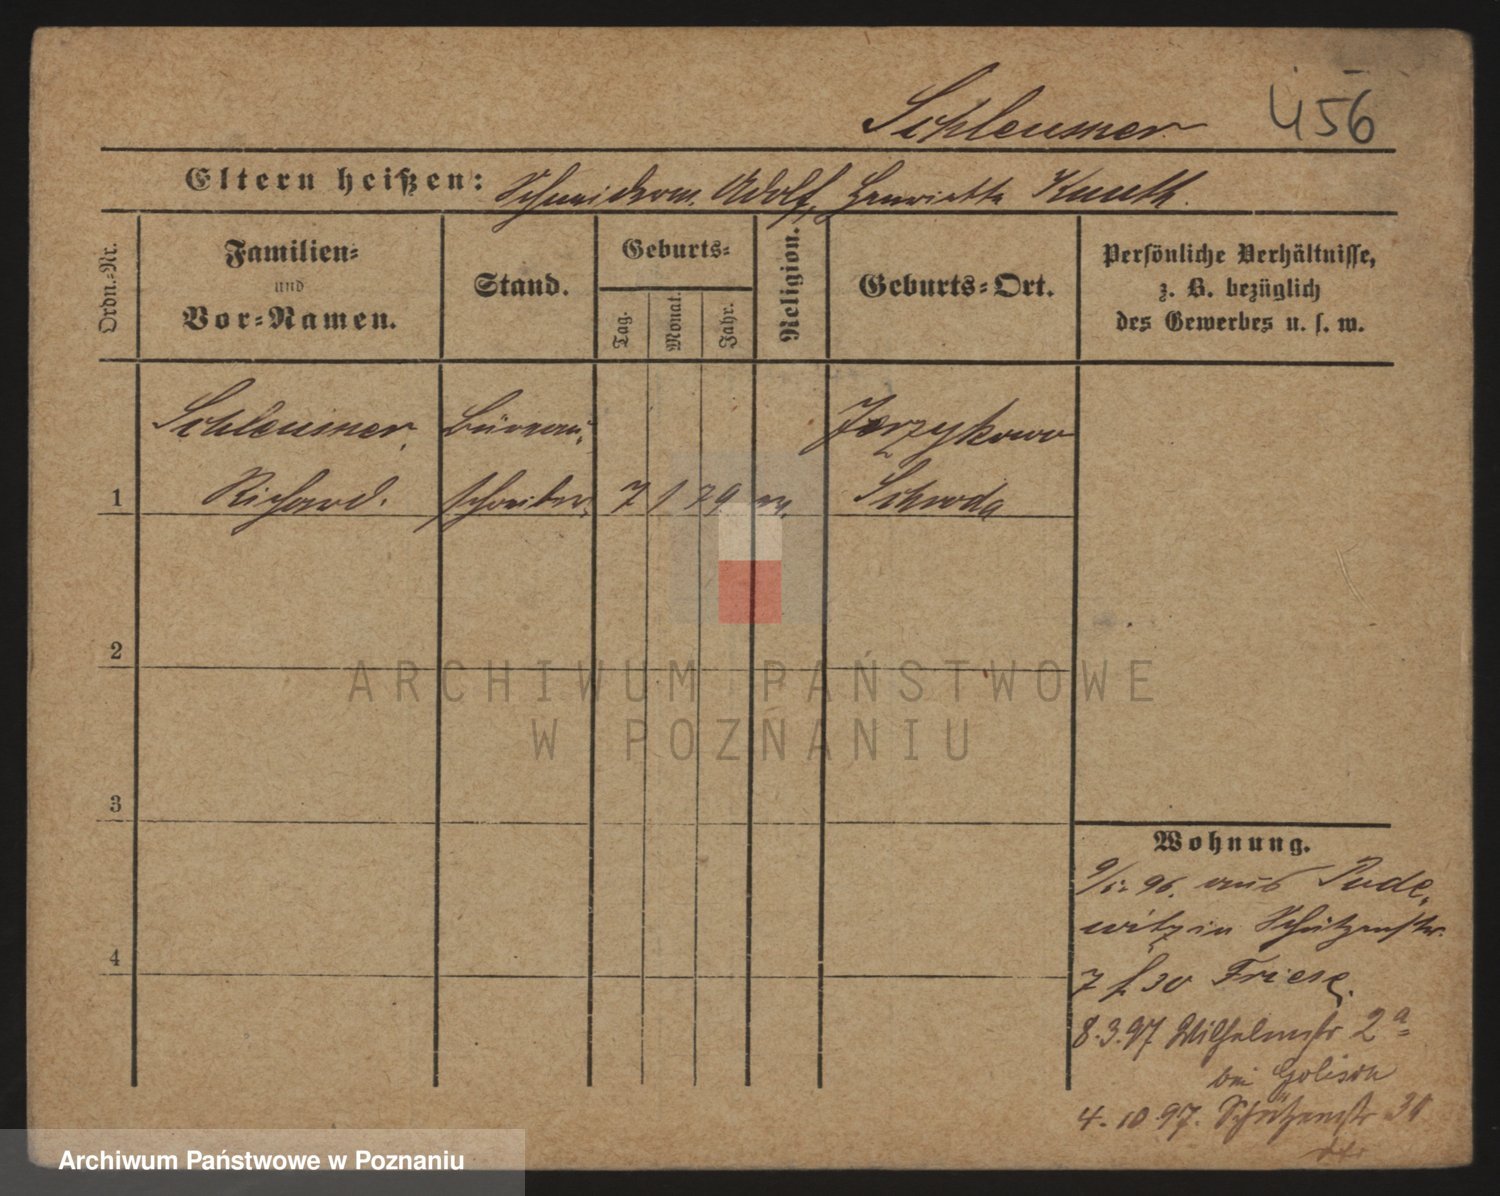 Schleusner
456
Eltern heißen: Schneiderm. Adolf, Henriette Knuth.
Ordn.-Nr.
Familien-
und
Vor-Namen.
Stand.
Geburts-
Tag.
Monat.
Jahr.
Religion.
Geburts-Ort.
Persönliche Verhältnisse,
z. B. bezüglich
des Gewerbes u. s. w.
Schleusner, Büreau- Jerzykowo
1 Richard. schreiber 7 1 79 Schroda
2
3
4
Wohnung.
96. aus Pude-
witz in Schützenstr.
7 30 Friese.
8.3.97 Wilhelmstr 2a
bei
4.10.97. Schützenstr 31
ARCHIWUM PAŃSTWOWE
W POZNANIU
Archiwum Państwowe w Poznaniu